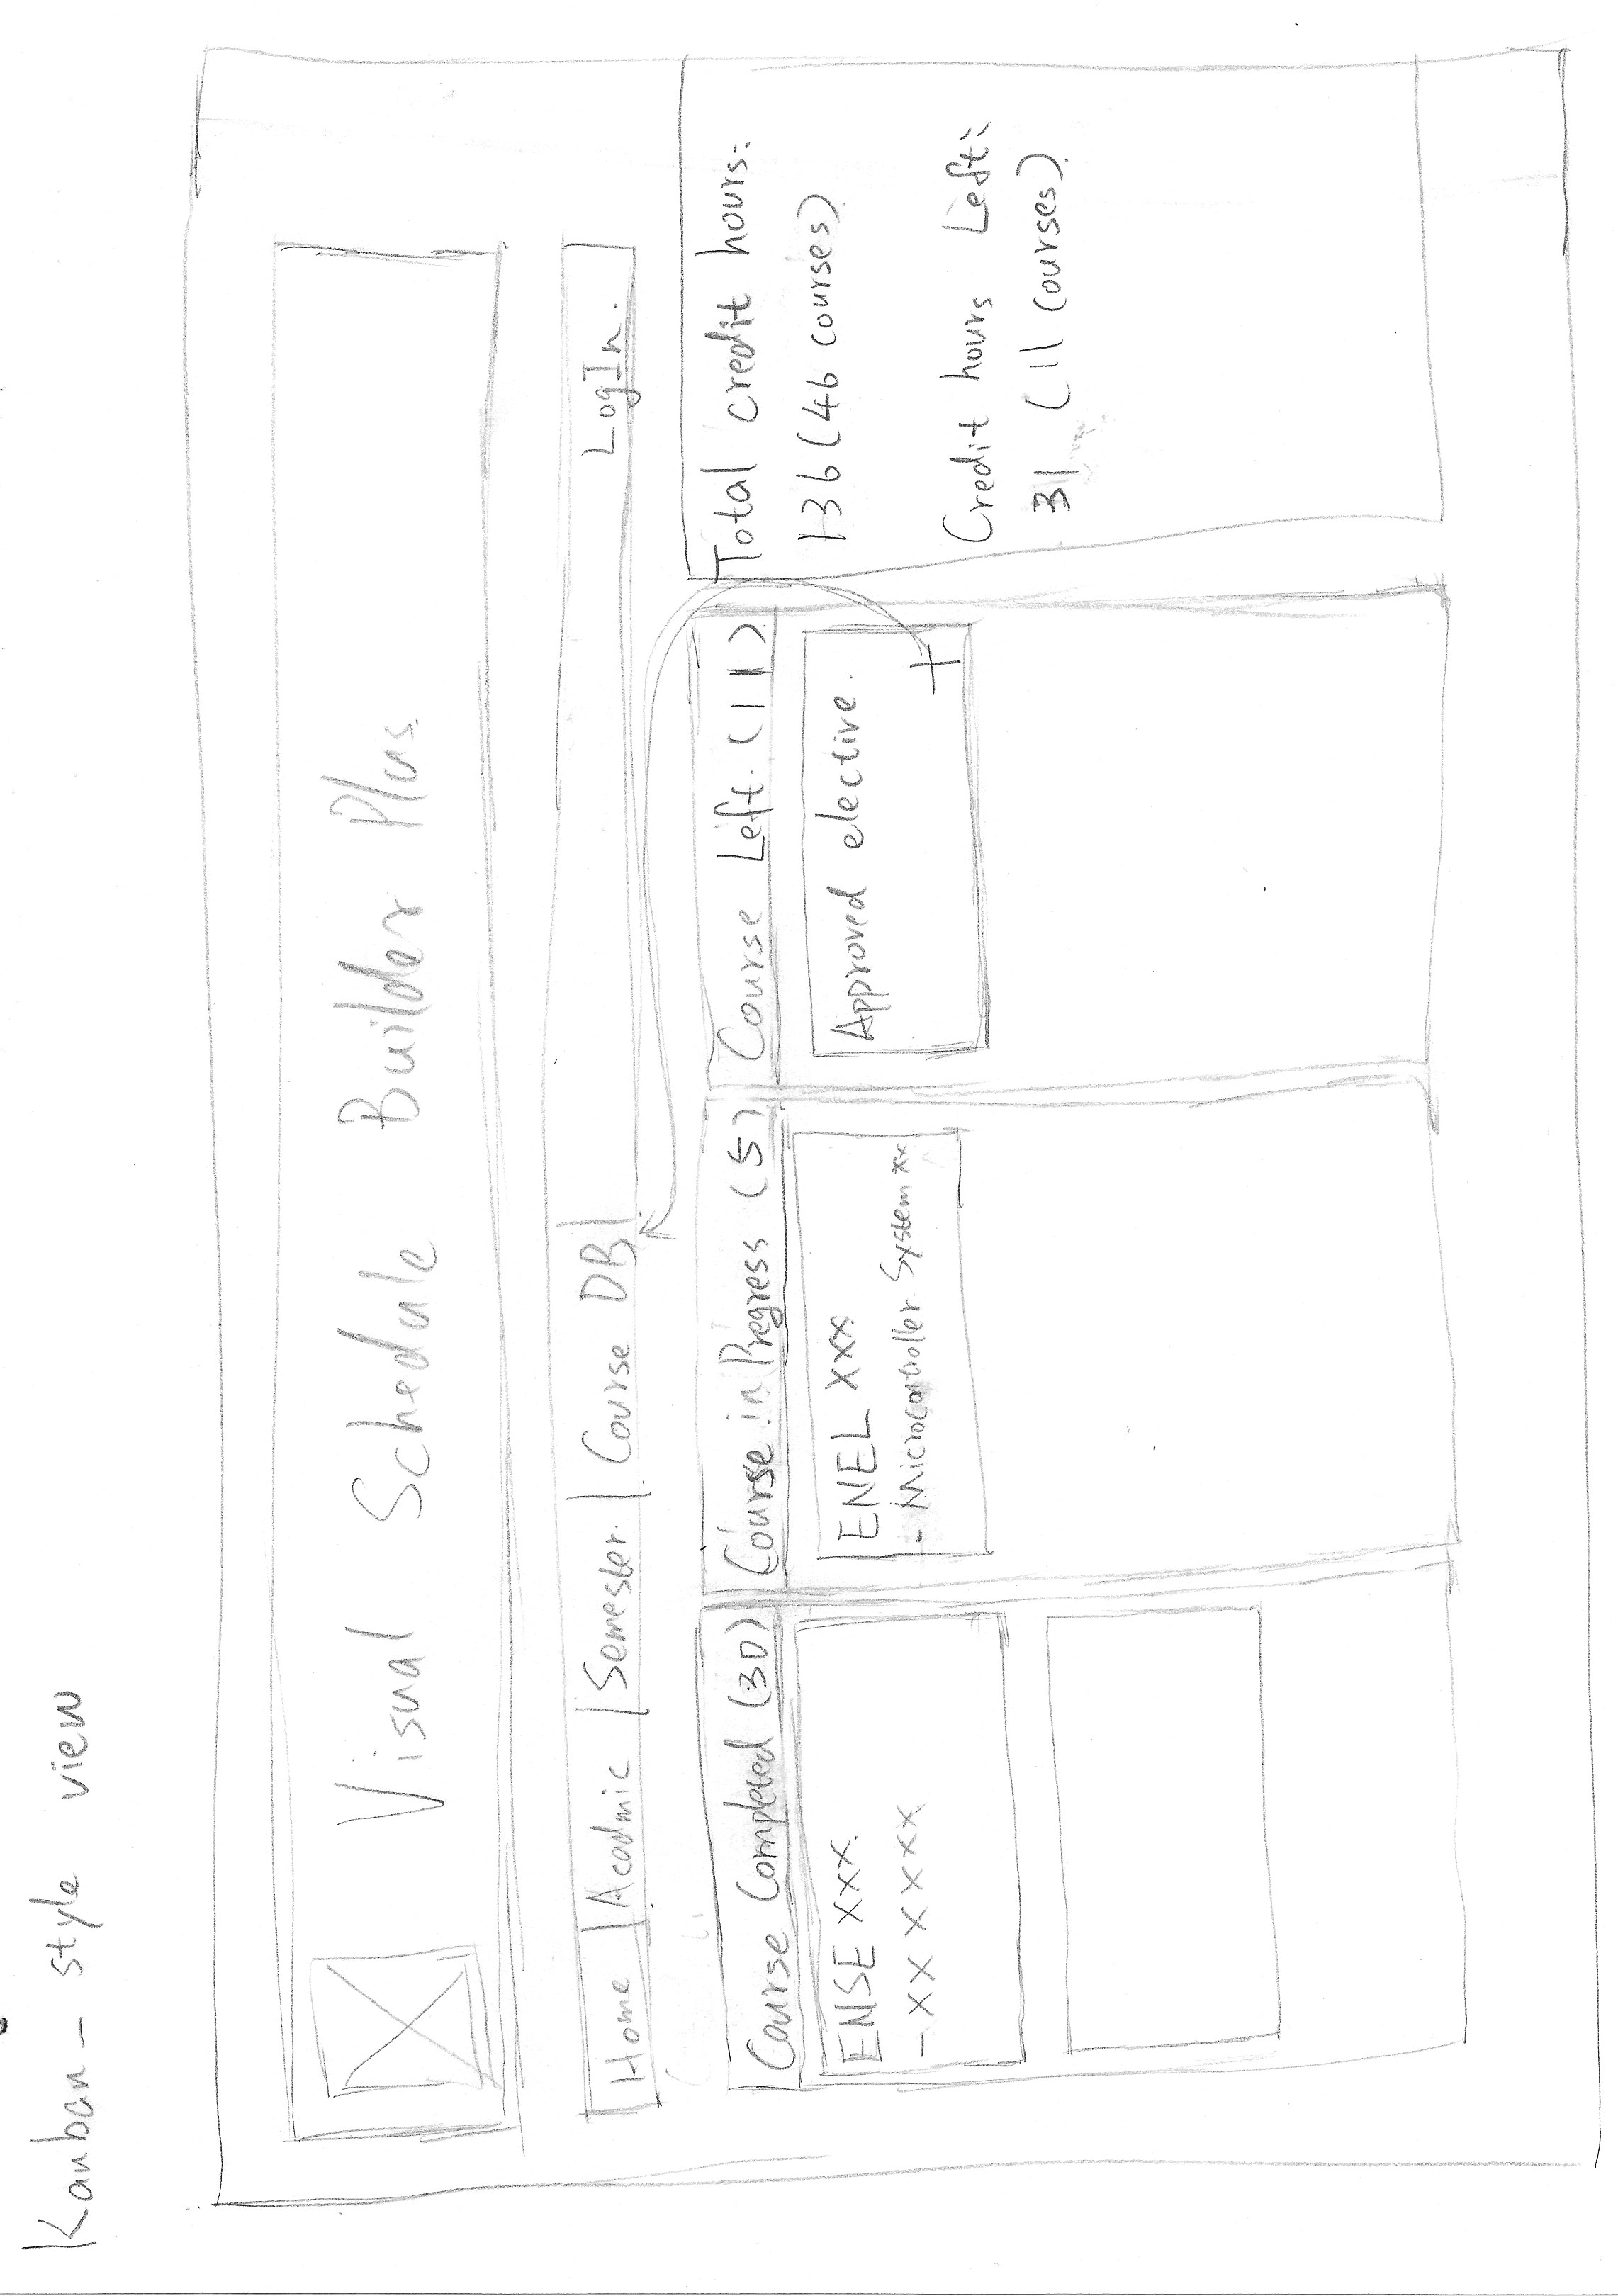 Kanban - style view
Visual Schedule Builder Plus
Home
Acadmic
Semester.
Course DB
LogIn.
Course Completed (30)
ENSE XXX.
- XX XXXXX
Course in Progress (5)
ENEL XXX
- Microcontroller System xx
Course Left. (11)
Approved elective.
+
Total credit hours:
136 (46 courses)
Credit hours Left:
31 (11 courses)